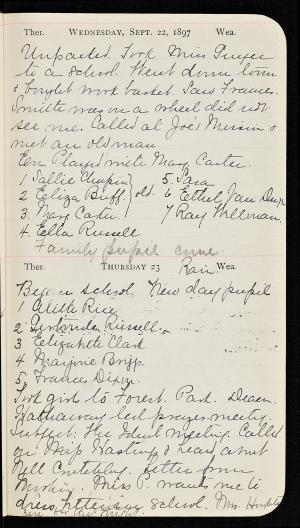 Ther. WEDNESDAY, SEPT. 22, 1897 Wea.
Unpacked. Took Miss
to a school. Went down town
& bought work basket. Saw Frances
Smith was on a wheel did not
see me. Called at Joe's Mission &
met an old man.
Eve Played with Mary Carter.
1 Sallie Chapin
2 Eliza Buff old.
3 Mary Carter
4 Ella Russell
5 Sara
6 Ethel Van
7 Ray Wellman
Family pupil came
Ther. THURSDAY 23 Rain Wea.
Began school. New day pupil
1 Alitte Rice
2 Gertrude Russell
3 Elizabeth Clark
4 Marjorie
5 Frances Dixon
Took girls to Forest Park. Deacon
Hathaway led prayer meeting.
Subject: The Ideal meeting. Called
on Miss Hastings & heard about
Nell. Letter from
Miss P. wants me to
dress, school. Mrs.